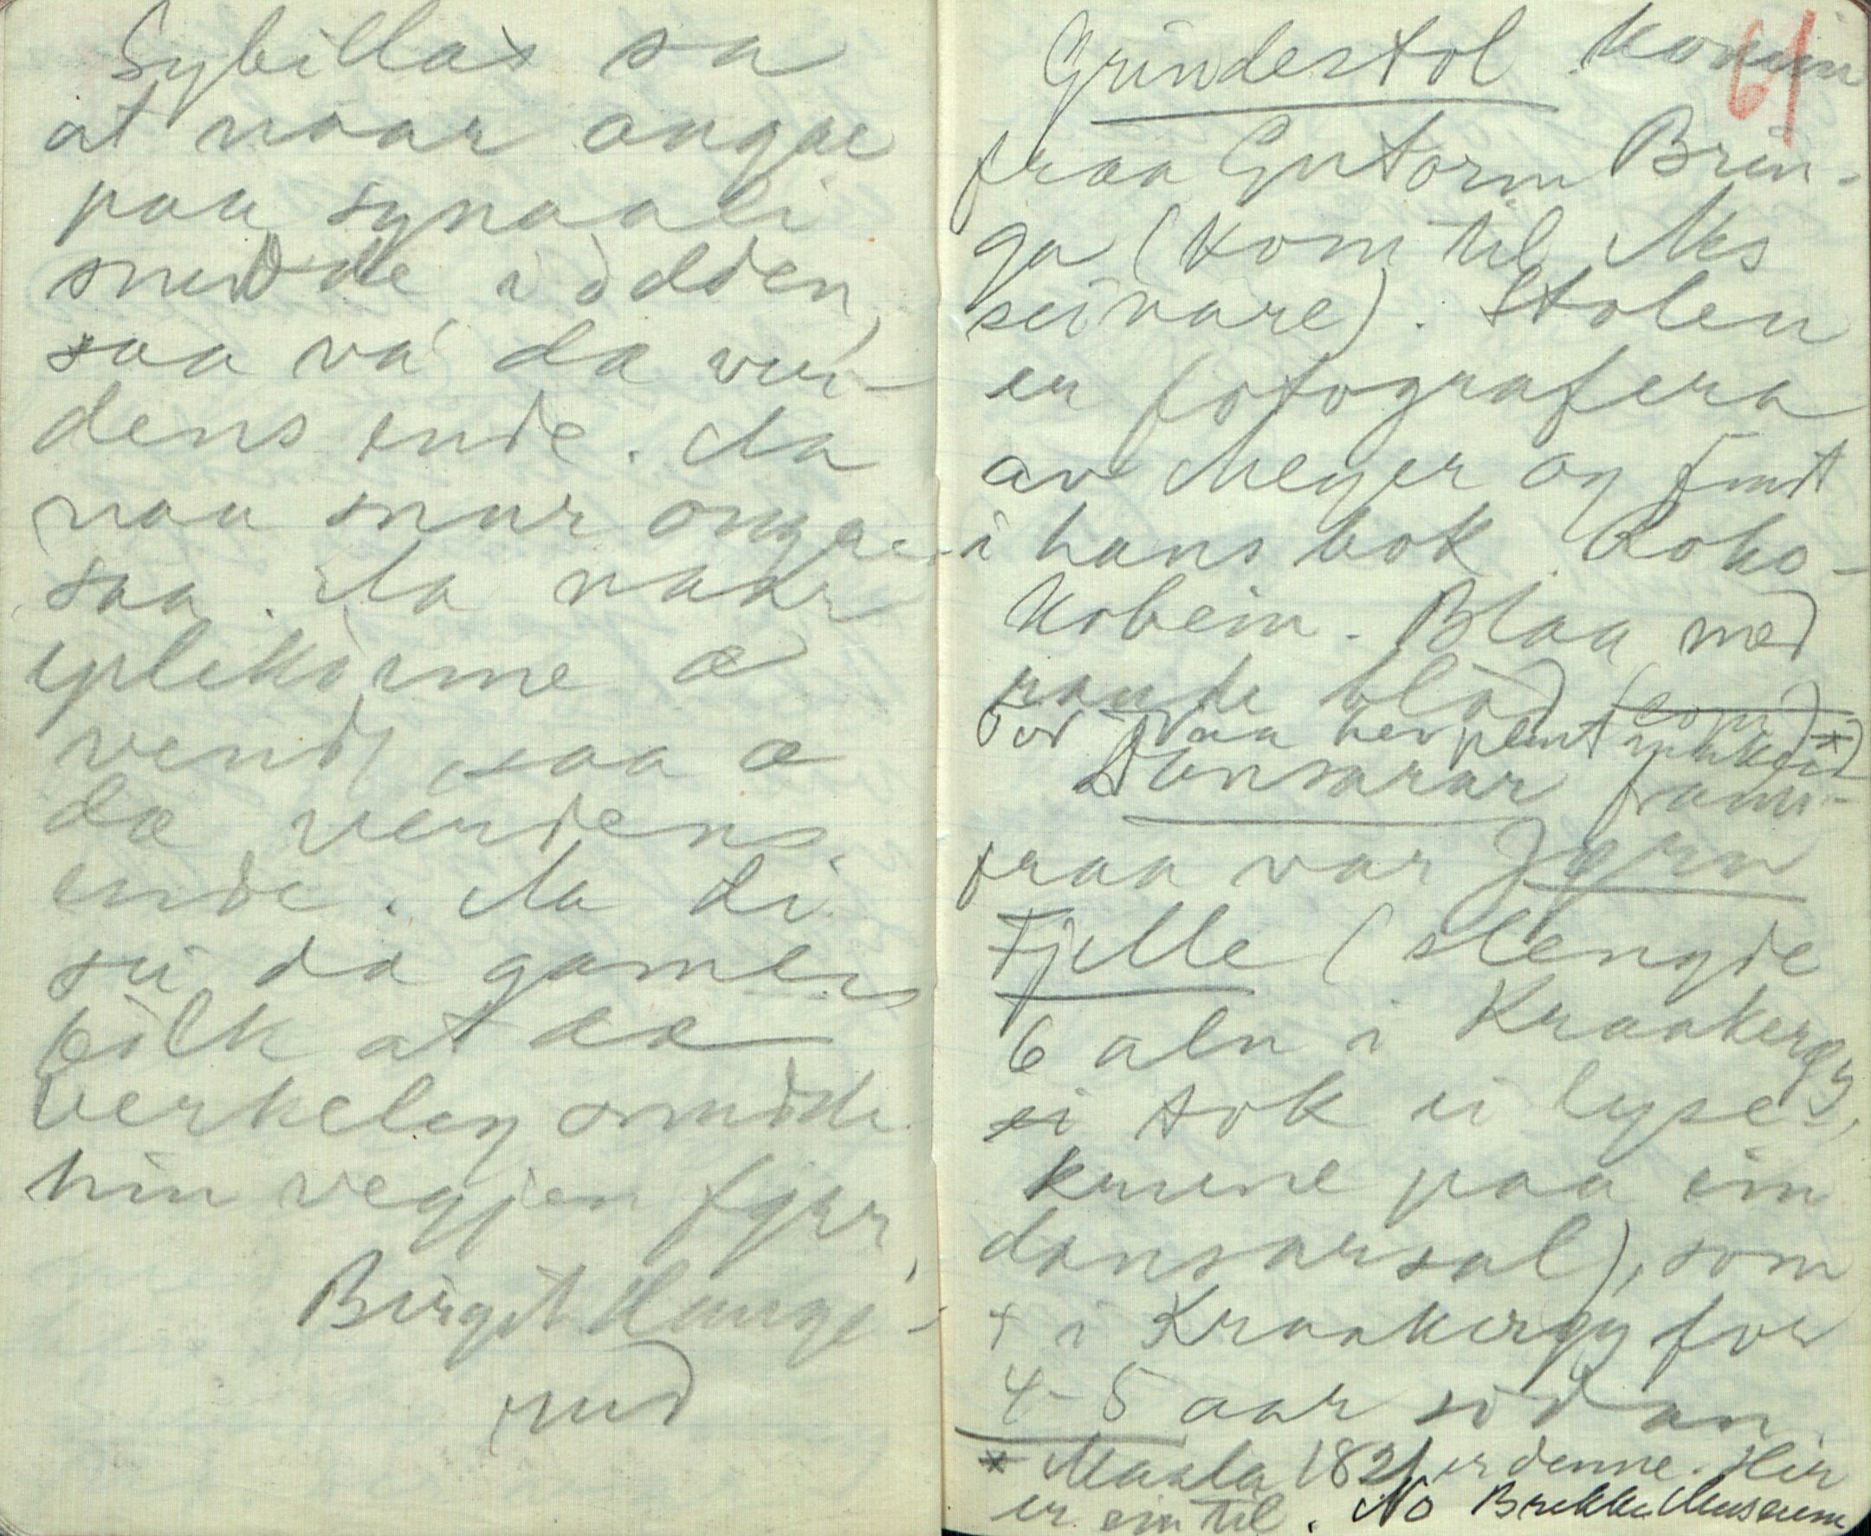 Sybillas sa
at naar augae
paa synaali
snudde i ådden,
saa va' dæ væ-
dens ende. Na
naa snur augae
saa. Na naar
eplekånne æ
vendt, saa æ
dæ verdens
ende. Na di
sei då gamle
fölk at dæ
verkeleg snudde
hin vegjen fyrr,
Birgit Hauge-
rud
61
Grindestol komin
fraa Gutorm Brin-
ga (kom til Nes
seinare). Stolen
er fotografera
av Meyer og funt
i hans bok. Roko-
kobein. Blaa med
raude blad (som) *)
Dansarar fram-
ifraa var Jørn
Fjelle (slengde
6 aln i Kraakergy,
ei tok ei lyse
krune paa ein
dansarsal), som
† i Kraakergy for
4-5 aar sidan.
* Maala 1821 er denne. Hier
er ein til. No Brekke Museum